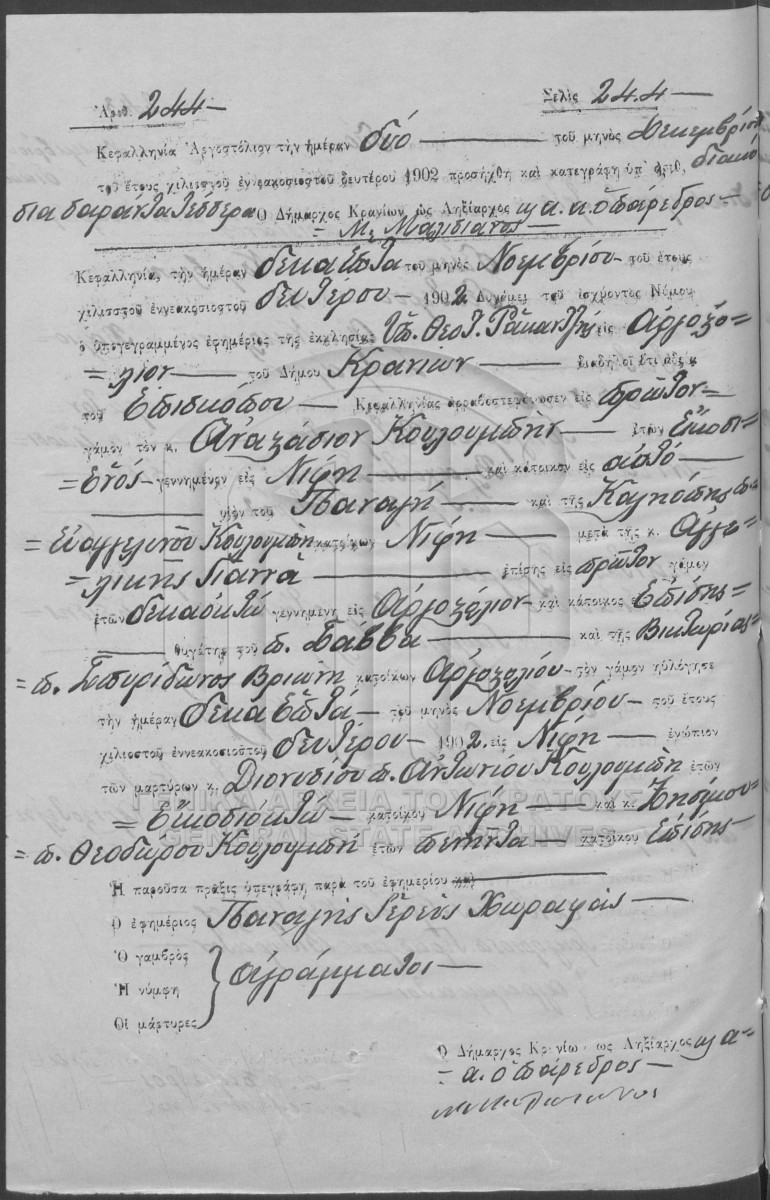 Ἀριθ. 244 — Σελὶς 244 —
Κεφαλληνία Ἀργοστόλιον τὴν ἡμέραν δύο — τοῦ μηνὸς Δεκεμβρίου
τοῦ ἔτους χιλιοστοῦ ἐννεακοσιοστοῦ δευτέρου 1902 προσήχθη καὶ κατεγράφη ὑπ' ἀριθ. διακό
σια σαράντα τέσσερα Ὁ Δήμαρχος Κρανίων ὡς Ληξίαρχος κ. α. α. ὁ πάρεδρος —
= Μ. Μαζιδιανος —
Κεφαλληνία, τὴν ἡμέραν δεκαεπτα τοῦ μηνὸς Νοεμβρίου — τοῦ ἔτους
χιλιοστοῦ ἐννεακοσιοστοῦ δευτέρου — 1902 Δυνάμει τοῦ ἰσχύοντος Νόμου
ὁ ὑπογεγραμμένος ἐφημέριος τῆς ἐκκλησίας Ὑπ. Θεοτ. εἰς Αργοστό=
= λιον — τοῦ Δήμου Κρανιων — διαδηλοῖ ὅτι ἀδείᾳ
τοῦ Επισκόπου — Κεφαλληνίας ἀρραβοστεφάνωσεν εἰς πρῶτον =
γάμον τὸν κ. Αναστάσιον Κουλουμπῆν — ἐτῶν Εἴκοσι =
= Ενὸς — γεννημένον εἰς Νιφη — καὶ κάτοικον εἰς αυτὸ —
— υἱὸν τοῦ Παναγῆ — καὶ τῆς Καλησπέρης π.
= Ευαγγελινοῦ Κουλουμπῆ κατοίκων Νιφη — μετὰ τῆς κ. Αγγε =
= λικῆς Γιαννᾶ — ἐπίσης εἰς πρῶτον γάμον
ἐτῶν δεκαοκτώ γεννημένη εἰς Αργοστόλιον — καὶ κάτοικος Επίσης =
— θυγάτηρ τοῦ π. Σάββα — καὶ τῆς Βικτωρίας =
= π. Σπυρίδωνος Βριωνη κατοίκων Αργοστολίου — τὸν γάμον ηὐλόγησε
τὴν ἡμέραν δεκα Επτά — τοῦ μηνὸς Νοεμβρίου — τοῦ ἔτους
χιλιοστοῦ ἐννεακοσιοστοῦ δευτέρου — 1902. εἰς Νιφη — ἐνώπιον
τῶν μαρτύρων κ. Διονυσίου π. Αντωνίου Κουλουμπῆ ἐτῶν
= Εἴκοσιοκτω — κατοίκου Νιφη — καὶ κ. Ζησίμου =
= π. Θεοδώρου Κουλουμπῆ ἐτῶν πενηντα — κατοίκου Επίσης —
Ἡ παροῦσα πρᾶξις ὑπεγράφη παρὰ τοῦ ἐφημερίου καὶ —
Ὁ ἐφημέριος Παναγὴς Ιερεὺς Χωραφας —
Ὁ γαμβρὸς
Ἡ νύμφη αγράμματοι —
Οἱ μάρτυρες
Ὁ Δήμαρχος Κρανίων ὡς Ληξίαρχος κ. α =
= α. ὁ πάρεδρος —
ΓΕΝΙΚΑ ΑΡΧΕΙΑ ΤΟΥ ΚΡΑΤΟΥΣ
GENERAL STATE ARCHIVES